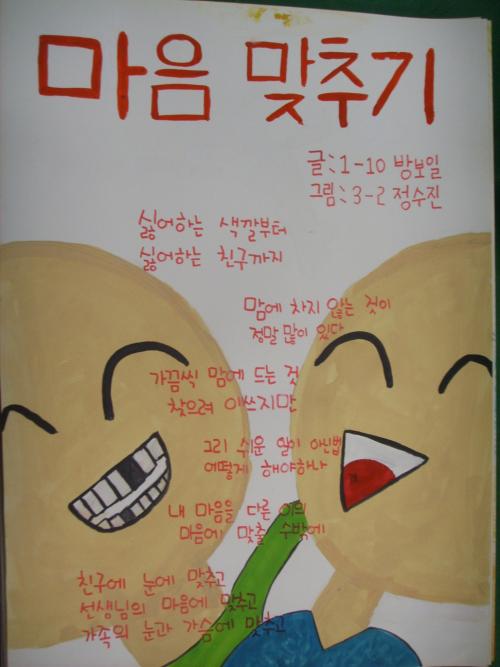 마음 맞추기
글:1-10 방보일
그림:3-2 정수진
싫어하는 색깔부터
싫어하는 친구까지
맘에 차지 않는 것이
정말 많이 있다
가끔씩 맘에 드는 것
찾으려 이쓰지만
그리 쉬운 일이 아닌법
어떻게 해야하나
내 마음을 다른 이의
마음에 맞출 수밖에
친구에 눈에 맞추고
선생님의 마음에 맞추고
가족의 눈과 가슴에 맞추고